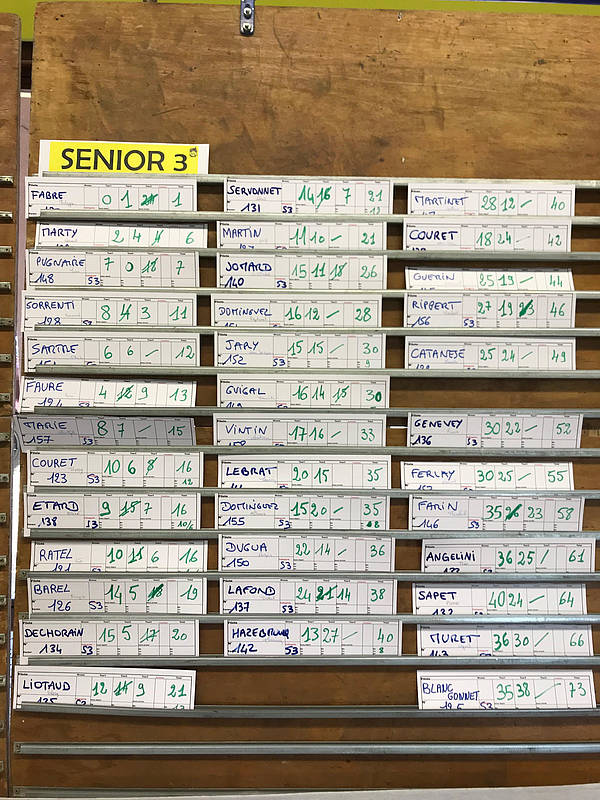 SENIOR 3
FABRE 0 1 1
MARTY 2 4 6
PUGNAIRE 7 0 18 7
148 S3
SORRENTI 8 4 3 11
128
SARTRE 6 6 – 12
FAURE 4 9 13
MARIE 8 7 – 15
157
COURET 10 6 8 16
123 S3 12
ETARD 9 7 16
138
RATEL 10 6 16
BAREL 14 5 19
126 S3
DECHORAIN 15 5 17 20
134 S3
LIOTAUD 12 9 21
SERVONNET 14 16 7 21
131 S3 12
MARTIN 11 10 – 21
JOMARD 15 11 18 26
140 S3
DOMINEVEL 16 12 – 28
JARY 15 15 – 30
152 S3 9
GUIGAL 16 14 15 30
VINTIN 17 16 – 33
LEBRAT 20 15 35
DOMINGUEZ 15 20 – 35
155 S3 8
DUGUA 22 14 – 36
150 S3
LAFOND 24 14 38
137 S3
13 27 – 40
142 S3 8
MARTINET 28 12 – 40
COURET 18 24 – 42
GUERIN 25 19 – 44
RIPPERT 27 19 46
156 S3
CATANESE 25 24 – 49
GENEVEY 30 22 – 52
136 S3
FERLAY 30 25 – 55
FARIN 35 23 58
146 S3
ANGELINI 36 25 / 61
SAPET 40 24 – 64
132 S3
MURET 36 30 / 66
BLANC GONNET 35 38 – 73
S3